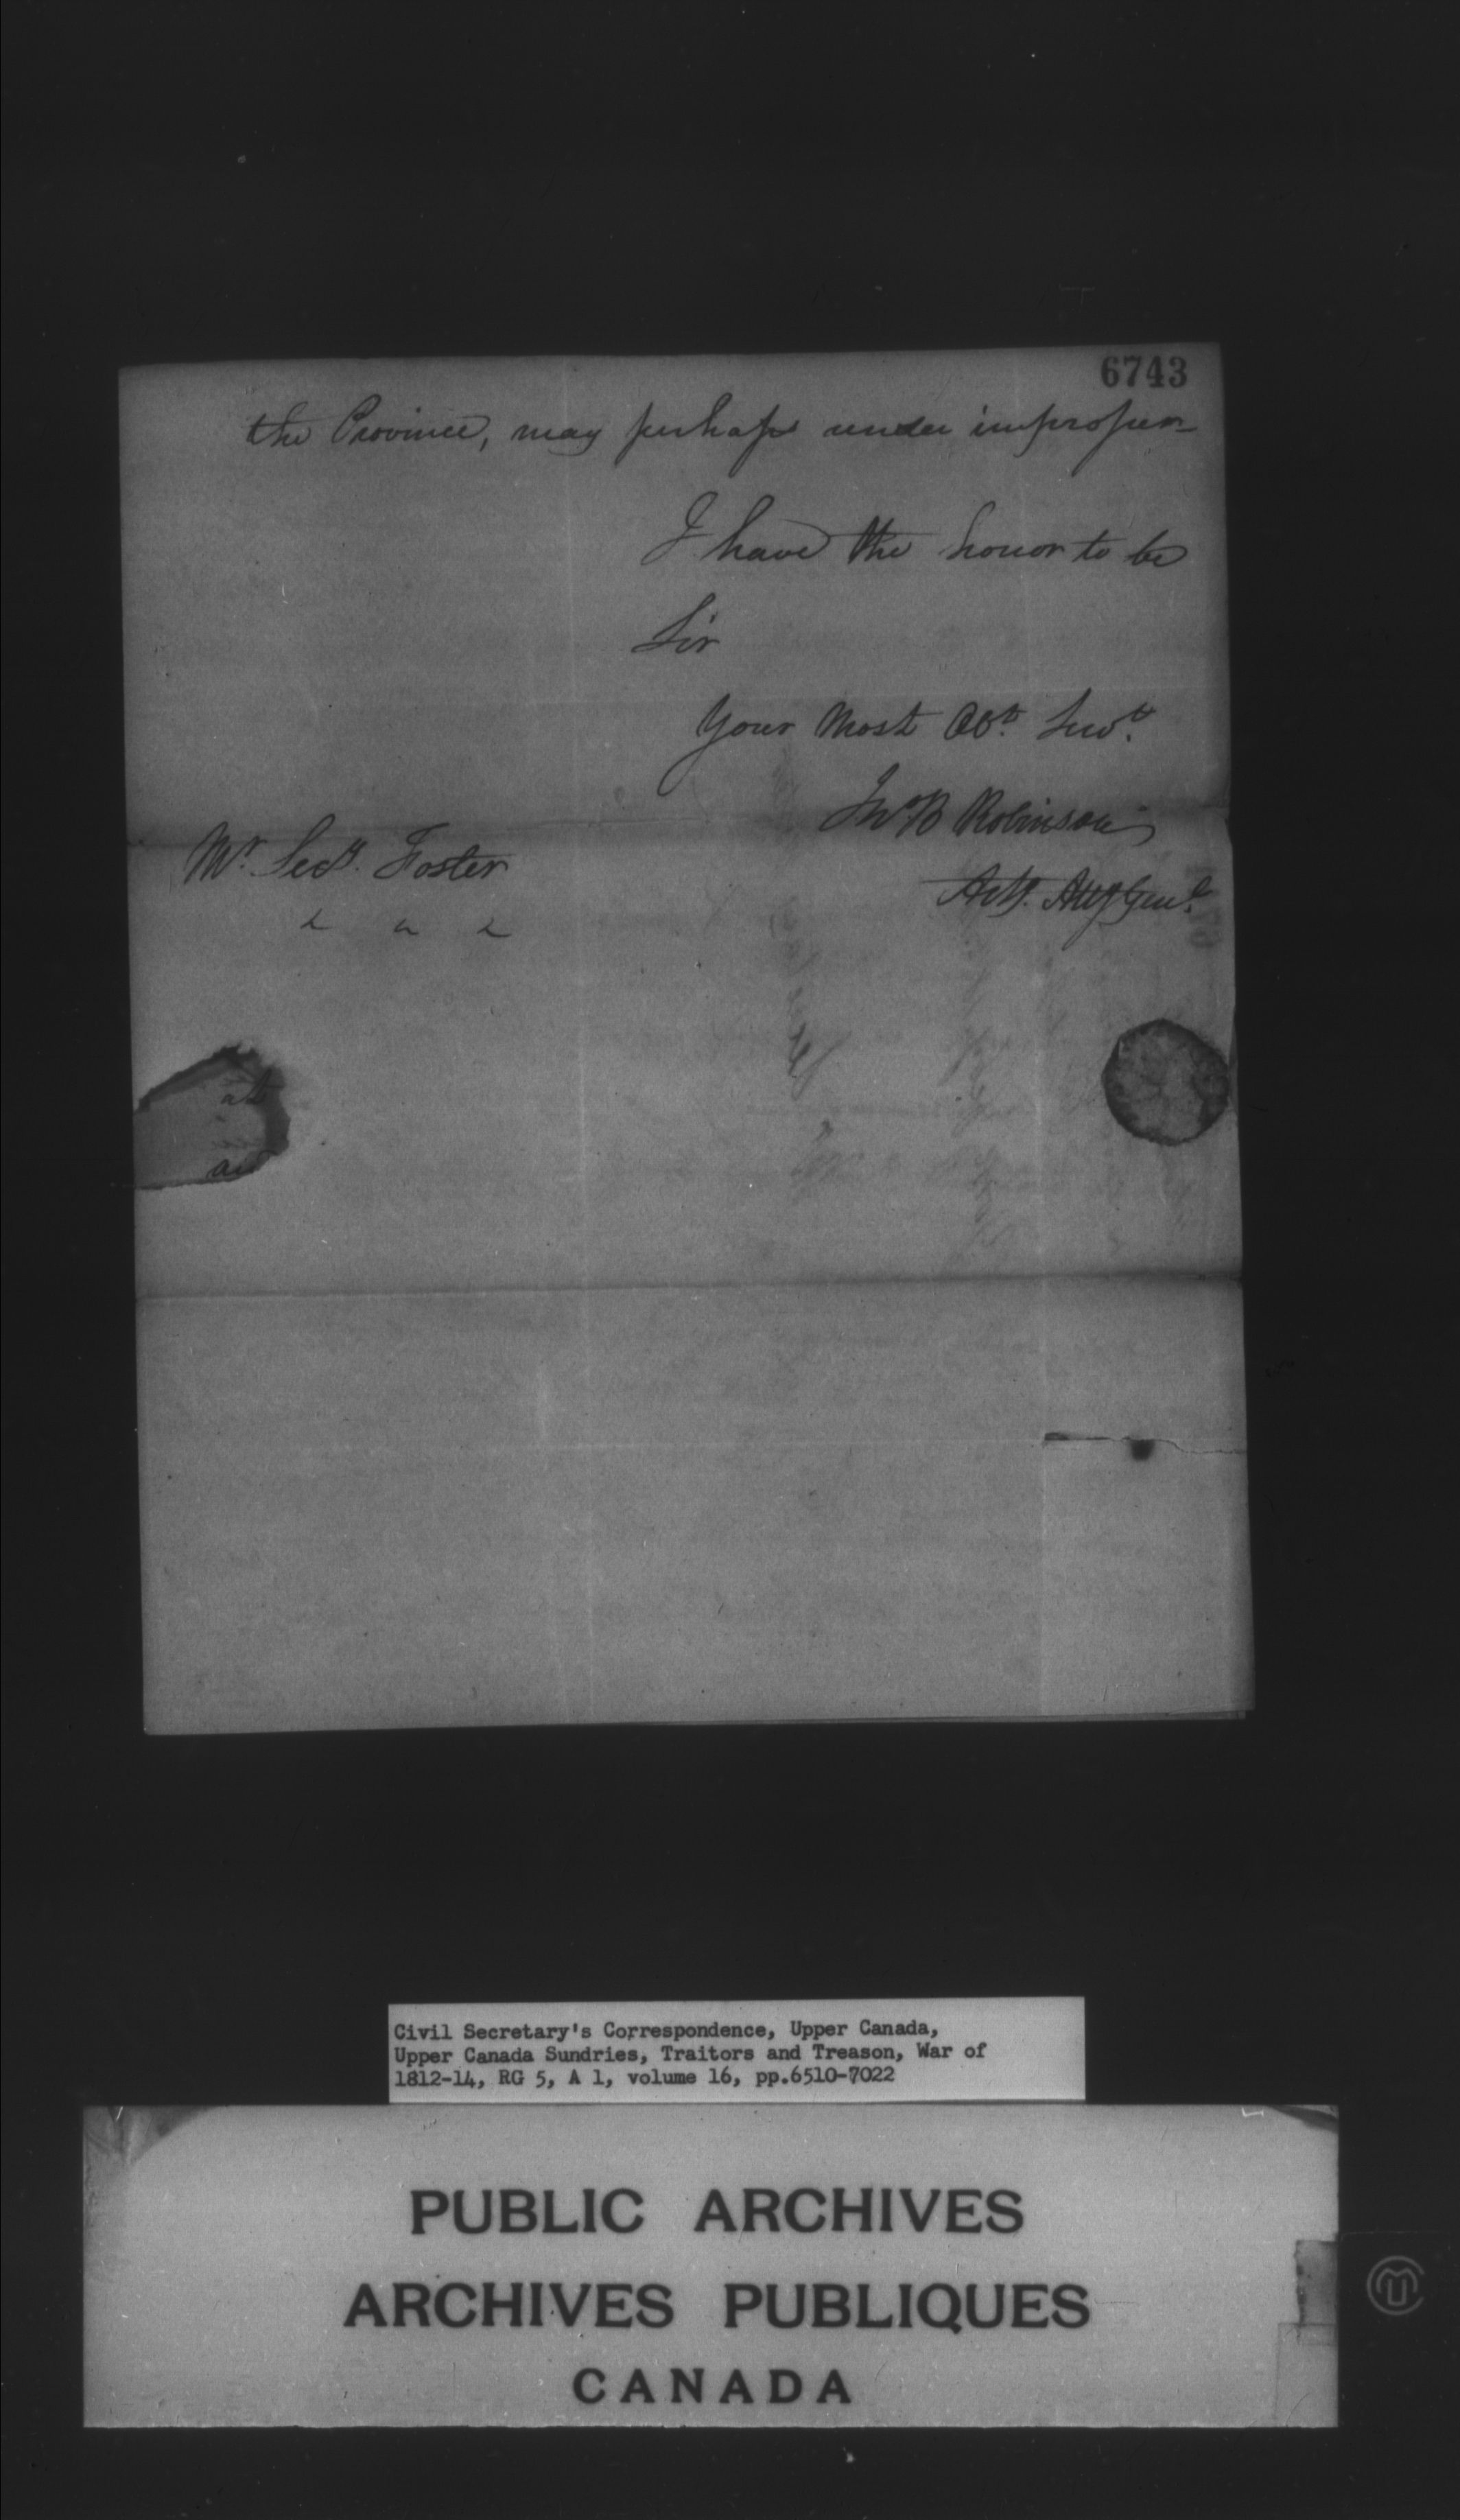 6743
the Province, may perhaps render improper—
I have the honor to be
Sir
Your Most Obt. Servt.
Jno B Robinson
Actg. Atty Genl.
Mr. Secy. Foster
&c &c &c
at
Civil Secretary's Correspondence, Upper Canada,
Upper Canada Sundries, Traitors and Treason, War of
1812-14, RG 5, A 1, volume 16, pp.6510-7022
PUBLIC ARCHIVES
ARCHIVES PUBLIQUES
CANADA